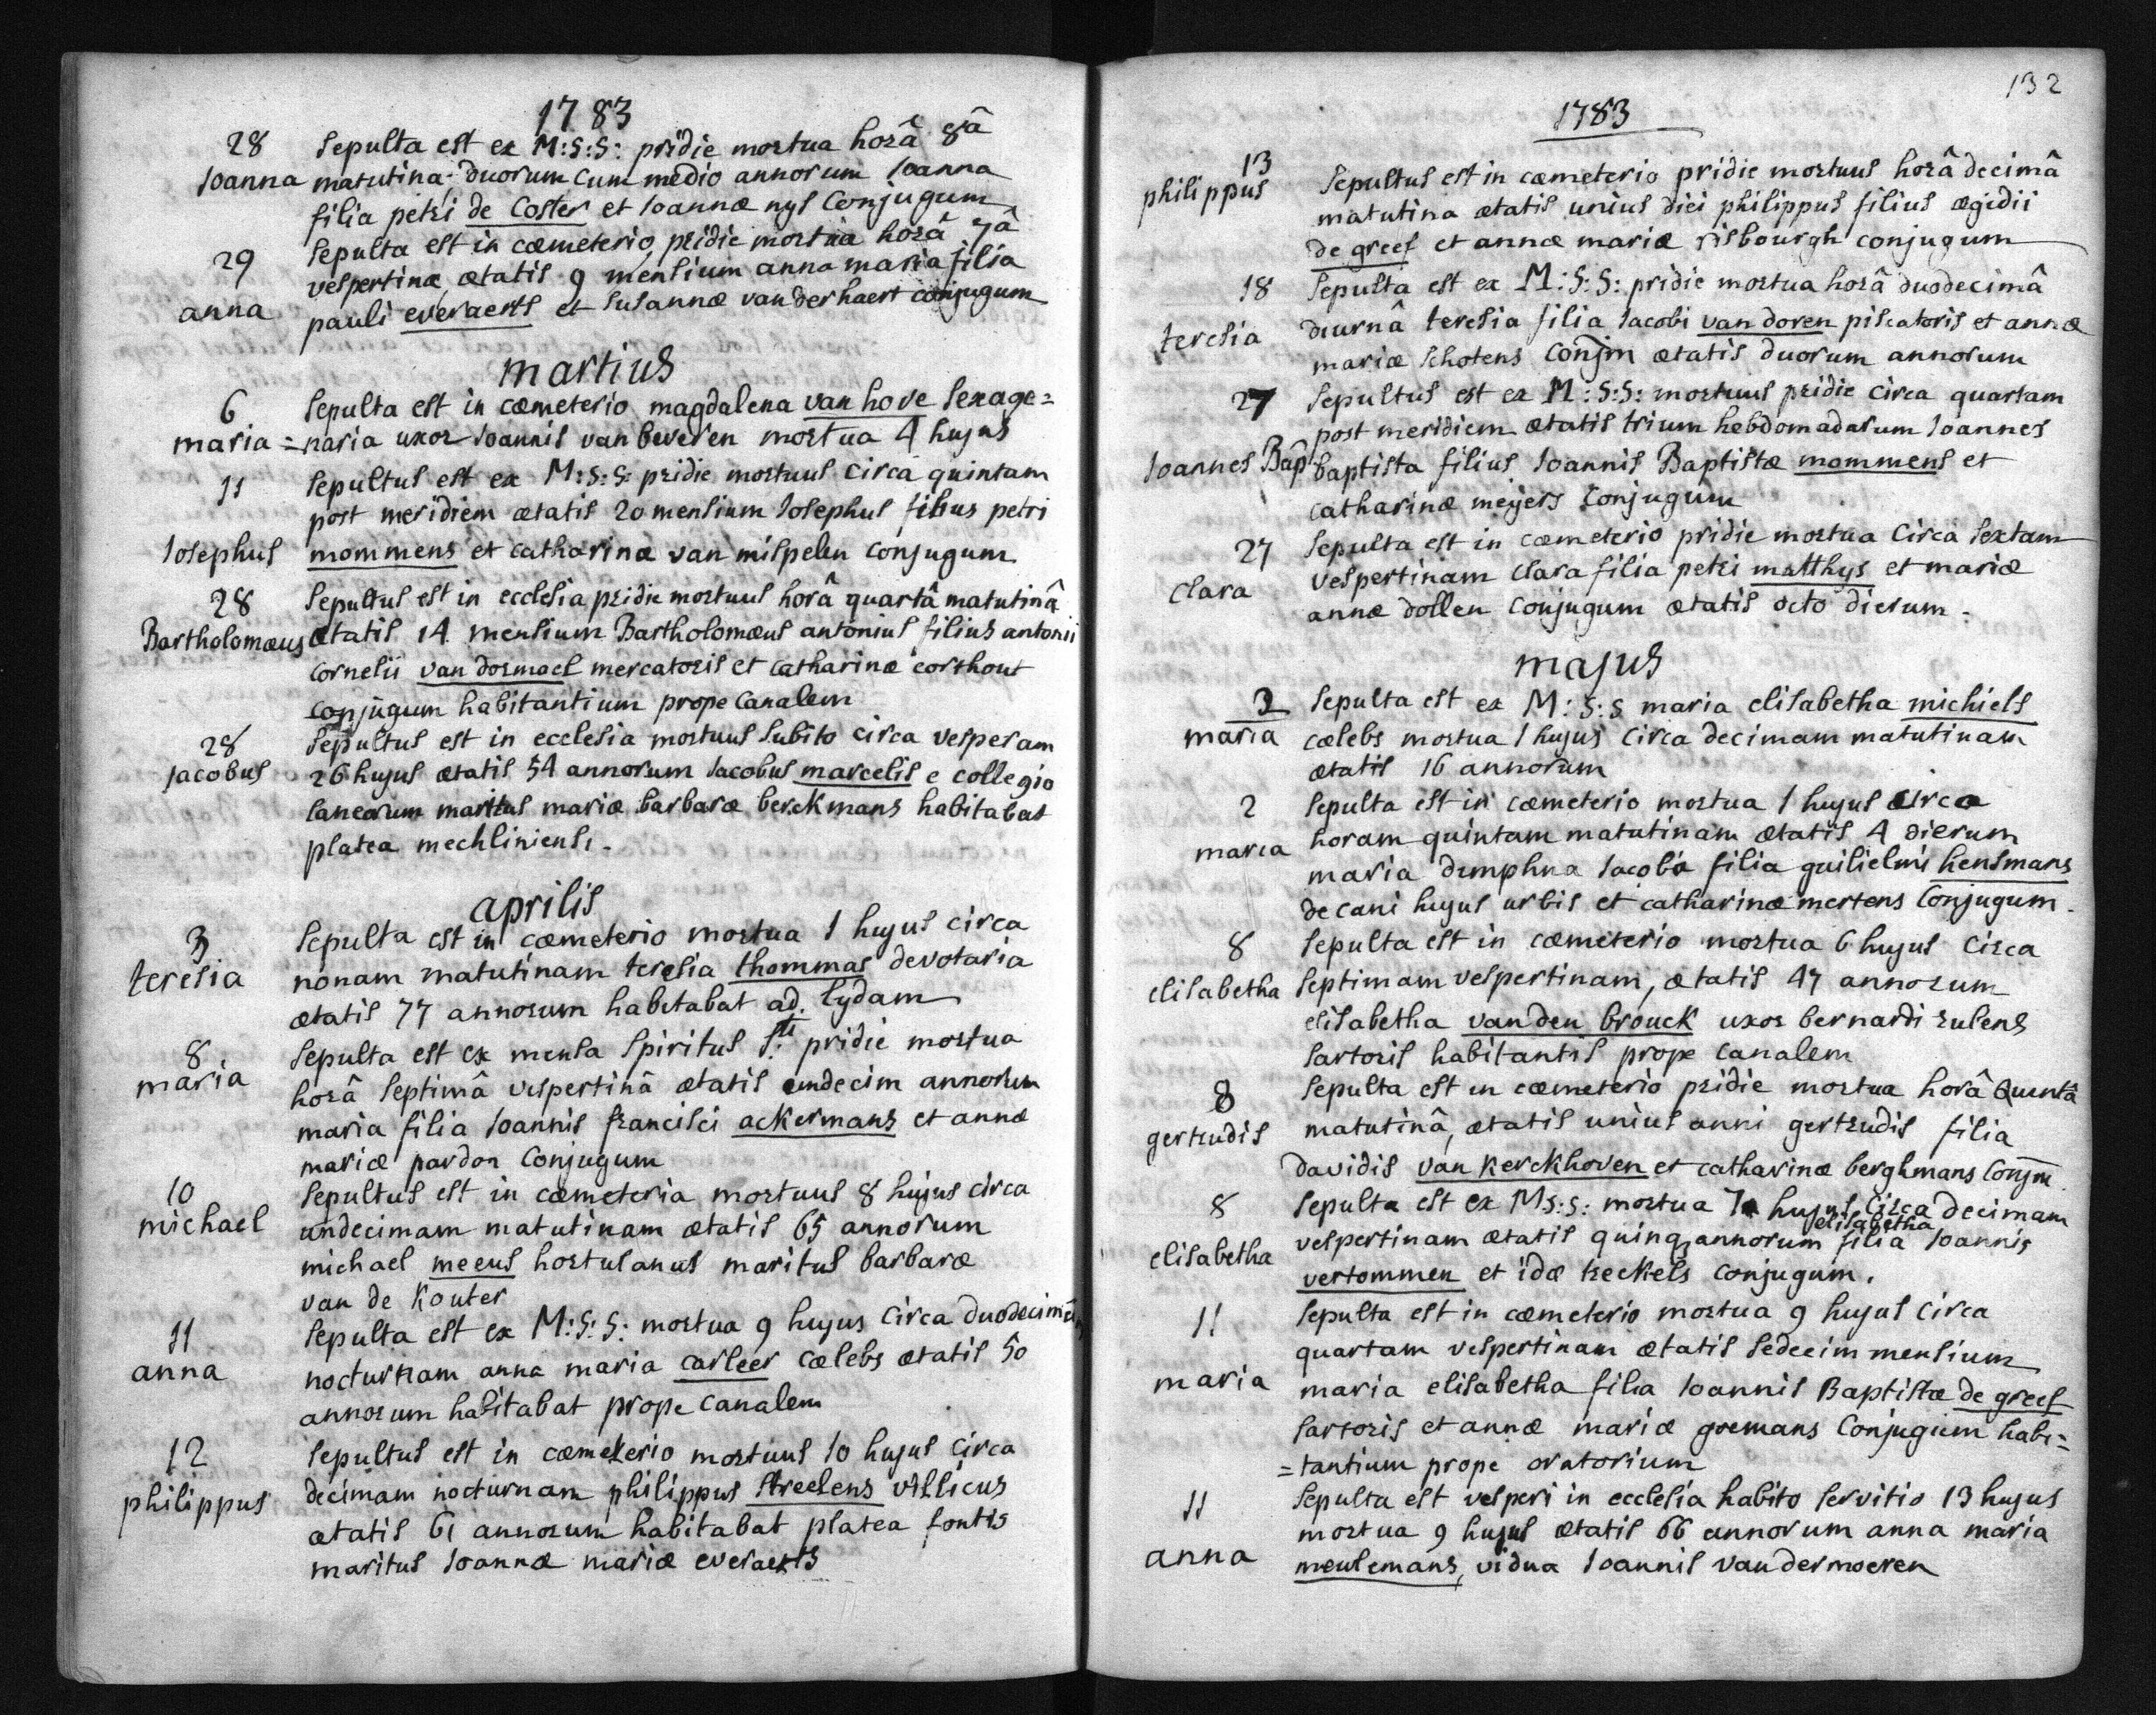 1783
28 Sepulta est ex M:S:S: pridie mortua horâ 8â
Ioanna matutina; duorum cum medio annorum Ioanna
filia petri de Coster et Ioannæ nys Conjugum
29 Sepulta est in cœmeterio pridie mortua horâ 7â
vespertinæ ætatis 9 mensium anna maria filia
anna pauli everaerts et Susannæ van der haert conjugum
martius
6 Sepulta est in cœmeterio magdalena van hove Sexage=
maria =naria uxor Ioannis van beveren mortua 4 hujus
11 Sepultus est ex M:S:S: pridie mortuus circa quintam
post meridiem ætatis 20 mensium Iosephus filius petri
Iosephus mommens et catharinæ van mispelen conjugum
28 Sepultus est in ecclesia pridie mortuus horâ quartâ matutinâ
Bartholomæus ætatis 14 mensium Bartholomæus antonius filius antonii
cornelii van dormael mercatoris et catharinæ corthout
conjugum habitantium prope canalem
28 Sepultus est in ecclesia mortuus Subito circa vesperam
jacobus 26 hujus ætatis 54 annorum Iacobus marcelis e collegio
laneorum maritus mariæ barbaræ berckmans habitabat
platea mechliniensi.
aprilis
3 Sepulta est in cœmeterio mortua 1 hujus circa
teresia nonam matutinam teresia thommas devotaria
ætatis 77 annorum habitabat ad lydam
8 Sepulta est ex mensa Spiritus S:ti pridie mortua
maria horâ Septimâ vespertinâ ætatis undecim annorum
maria filia Ioannis francisci ackermans et annæ
mariæ pardon Conjugum
10 Sepultus est in cœmeteria mortuus 8 hujus circa
michael undecimam matutinam ætatis 65 annorum
michael meeus hortulanus maritus barbaræ
van de Kouter
11 Sepulta est ex M:S:S: mortua 9 hujus circa duodecimam
anna nocturnam anna maria carleer cœlebs ætatis 50
annorum habitabat prope canalem
12 Sepultus est in cœmeterio mortuus 10 hujus circa
philippus decimam nocturnam philippus Streelens villicus
ætatis 61 annorum habitabat platea fontis
maritus Ioannæ mariæ everaerts
132
1783
13 Sepultus est in cœmeterio pridie mortuus horâ decimâ
philippus matutina ætatis unius diei philippus filius ægidii
de greef et annæ mariæ risbourgh conjugum
18 Sepulta est ex M:S:S: pridie mortua horâ duodecimâ
teresia diurnâ teresia filia Iacobi van doren piscatoris et annæ
mariæ Schotens Conjm ætatis duorum annorum
27 Sepultus est ex M:S:S: mortuus pridie circa quartam
post meridiem ætatis trium hebdomadarum Ioannes
Ioannes Bap baptista filius Ioannis Baptistæ mommens et
catharinæ meyers Conjugum
27 Sepulta est in cœmeterio pridie mortua circa Sextam
clara vespertinam clara filia petri matthys et mariæ
annæ dollen conjugum ætatis octo dierum.
majus
2 Sepulta est ex M:S:S maria elisabetha michiels
maria cælebs mortua 1 hujus circa decimam matutinam
ætatis 16 annorum
2 Sepulta est in cœmeterio mortua 1 hujus circa
maria horam quintam matutinam ætatis 4 dierum
maria dimphna Iacoba filia guilielmi hensmans
decani hujus urbis et catharinæ mertens Conjugum.
8 Sepulta est in cœmeterio mortua 6 hujus circa
elisabetha Septimam vespertinam, ætatis 47 annorum
elisabetha van den brouck uxor bernardi rulens
Sartoris habitantis prope canalem
8 Sepulta est in cœmeterio pridie mortua horâ quintâ
gertrudis matutinâ, ætatis unius anni gertrudis filia
davidis van Kerckhoven et catharinæ berghmans Conjm
8 Sepulta est ex M:S:S: mortua 7 hujus circa decimam
elisabetha
elisabetha vespertinam ætatis quinq annorum filia Ioannis
vertommen et idæ treckels conjugum.
11 Sepulta est in cœmeterio mortua 9 hujus circa
quartam vespertinam ætatis Sedecim mensium
maria maria elisabetha filia Ioannis Baptistæ de greef
Sartoris et annæ mariæ goemans Conjugum habi=
=tantium prope oratorium
11 Sepulta est vesperi in ecclesia habito Servitio 13 hujus
mortua 9 hujus ætatis 66 annorum anna maria
anna meulemans, vidua Ioannis van der moeren